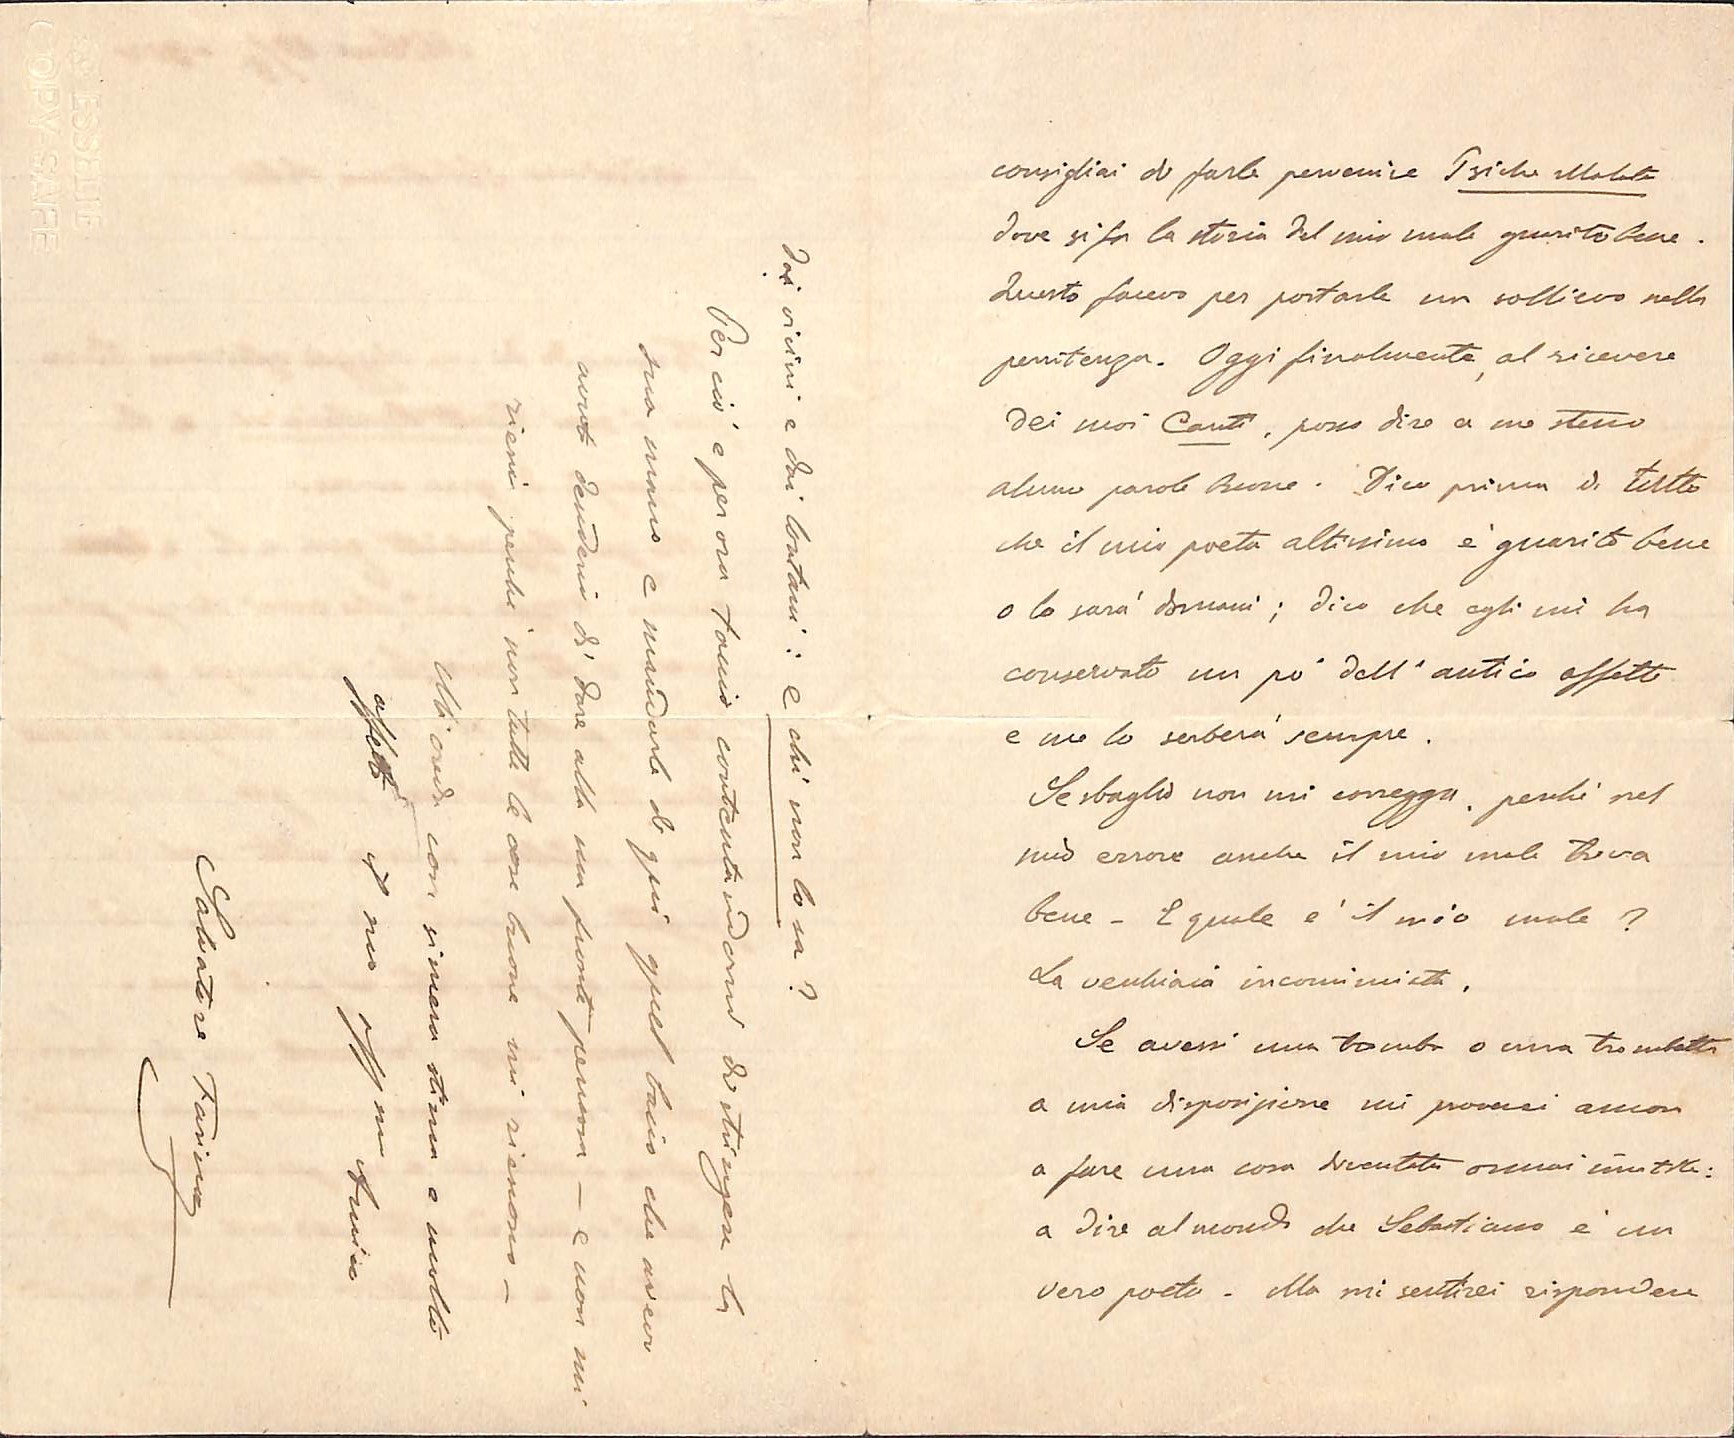 consigliai di farle pervenire Psiche Malata
dove si fa la storia del mio male guarito bene.
Questo facevo per portarle un sollievo nella
penitenza. Oggi finalmente, al ricevere
dei suoi Canti, posso dire a me stesso
alcune parole buone. Dico prima di tutto
che il mio poeta altissimo è guarito bene
o lo sarà domani; dico che egli mi ha
conservato un po' dell'antico affetto
e me lo serberà sempre.
Se sbaglio non mi corregga, perchè nel
mio errore anche il mio male trova
bene - E quale è il mio male?
La vecchiaia incominciata.
Se avessi una tromba o una trombetta
a mia disposizione mi proverei ancora
a fare una cosa diventata ormai inutile:
a dire al mondo che Sebastiano è un
vero poeta - Ma mi sentirei rispondere
dai vicini e dai lontani: e chi non lo sa?
Perciò e per ora faccio contentandomi di stringere la
sua mano e mandarle di qui quel bacio che avevo
avuto desiderio di dare alla sua fronte pensosa — e non mi
riescì perchè non tutte le cose buone mi riescono —
Mi creda con sincera stima e molto
affetto il suo aff.mo Amico
Salvatore Farina
ESSELTE
COPY-SAFE